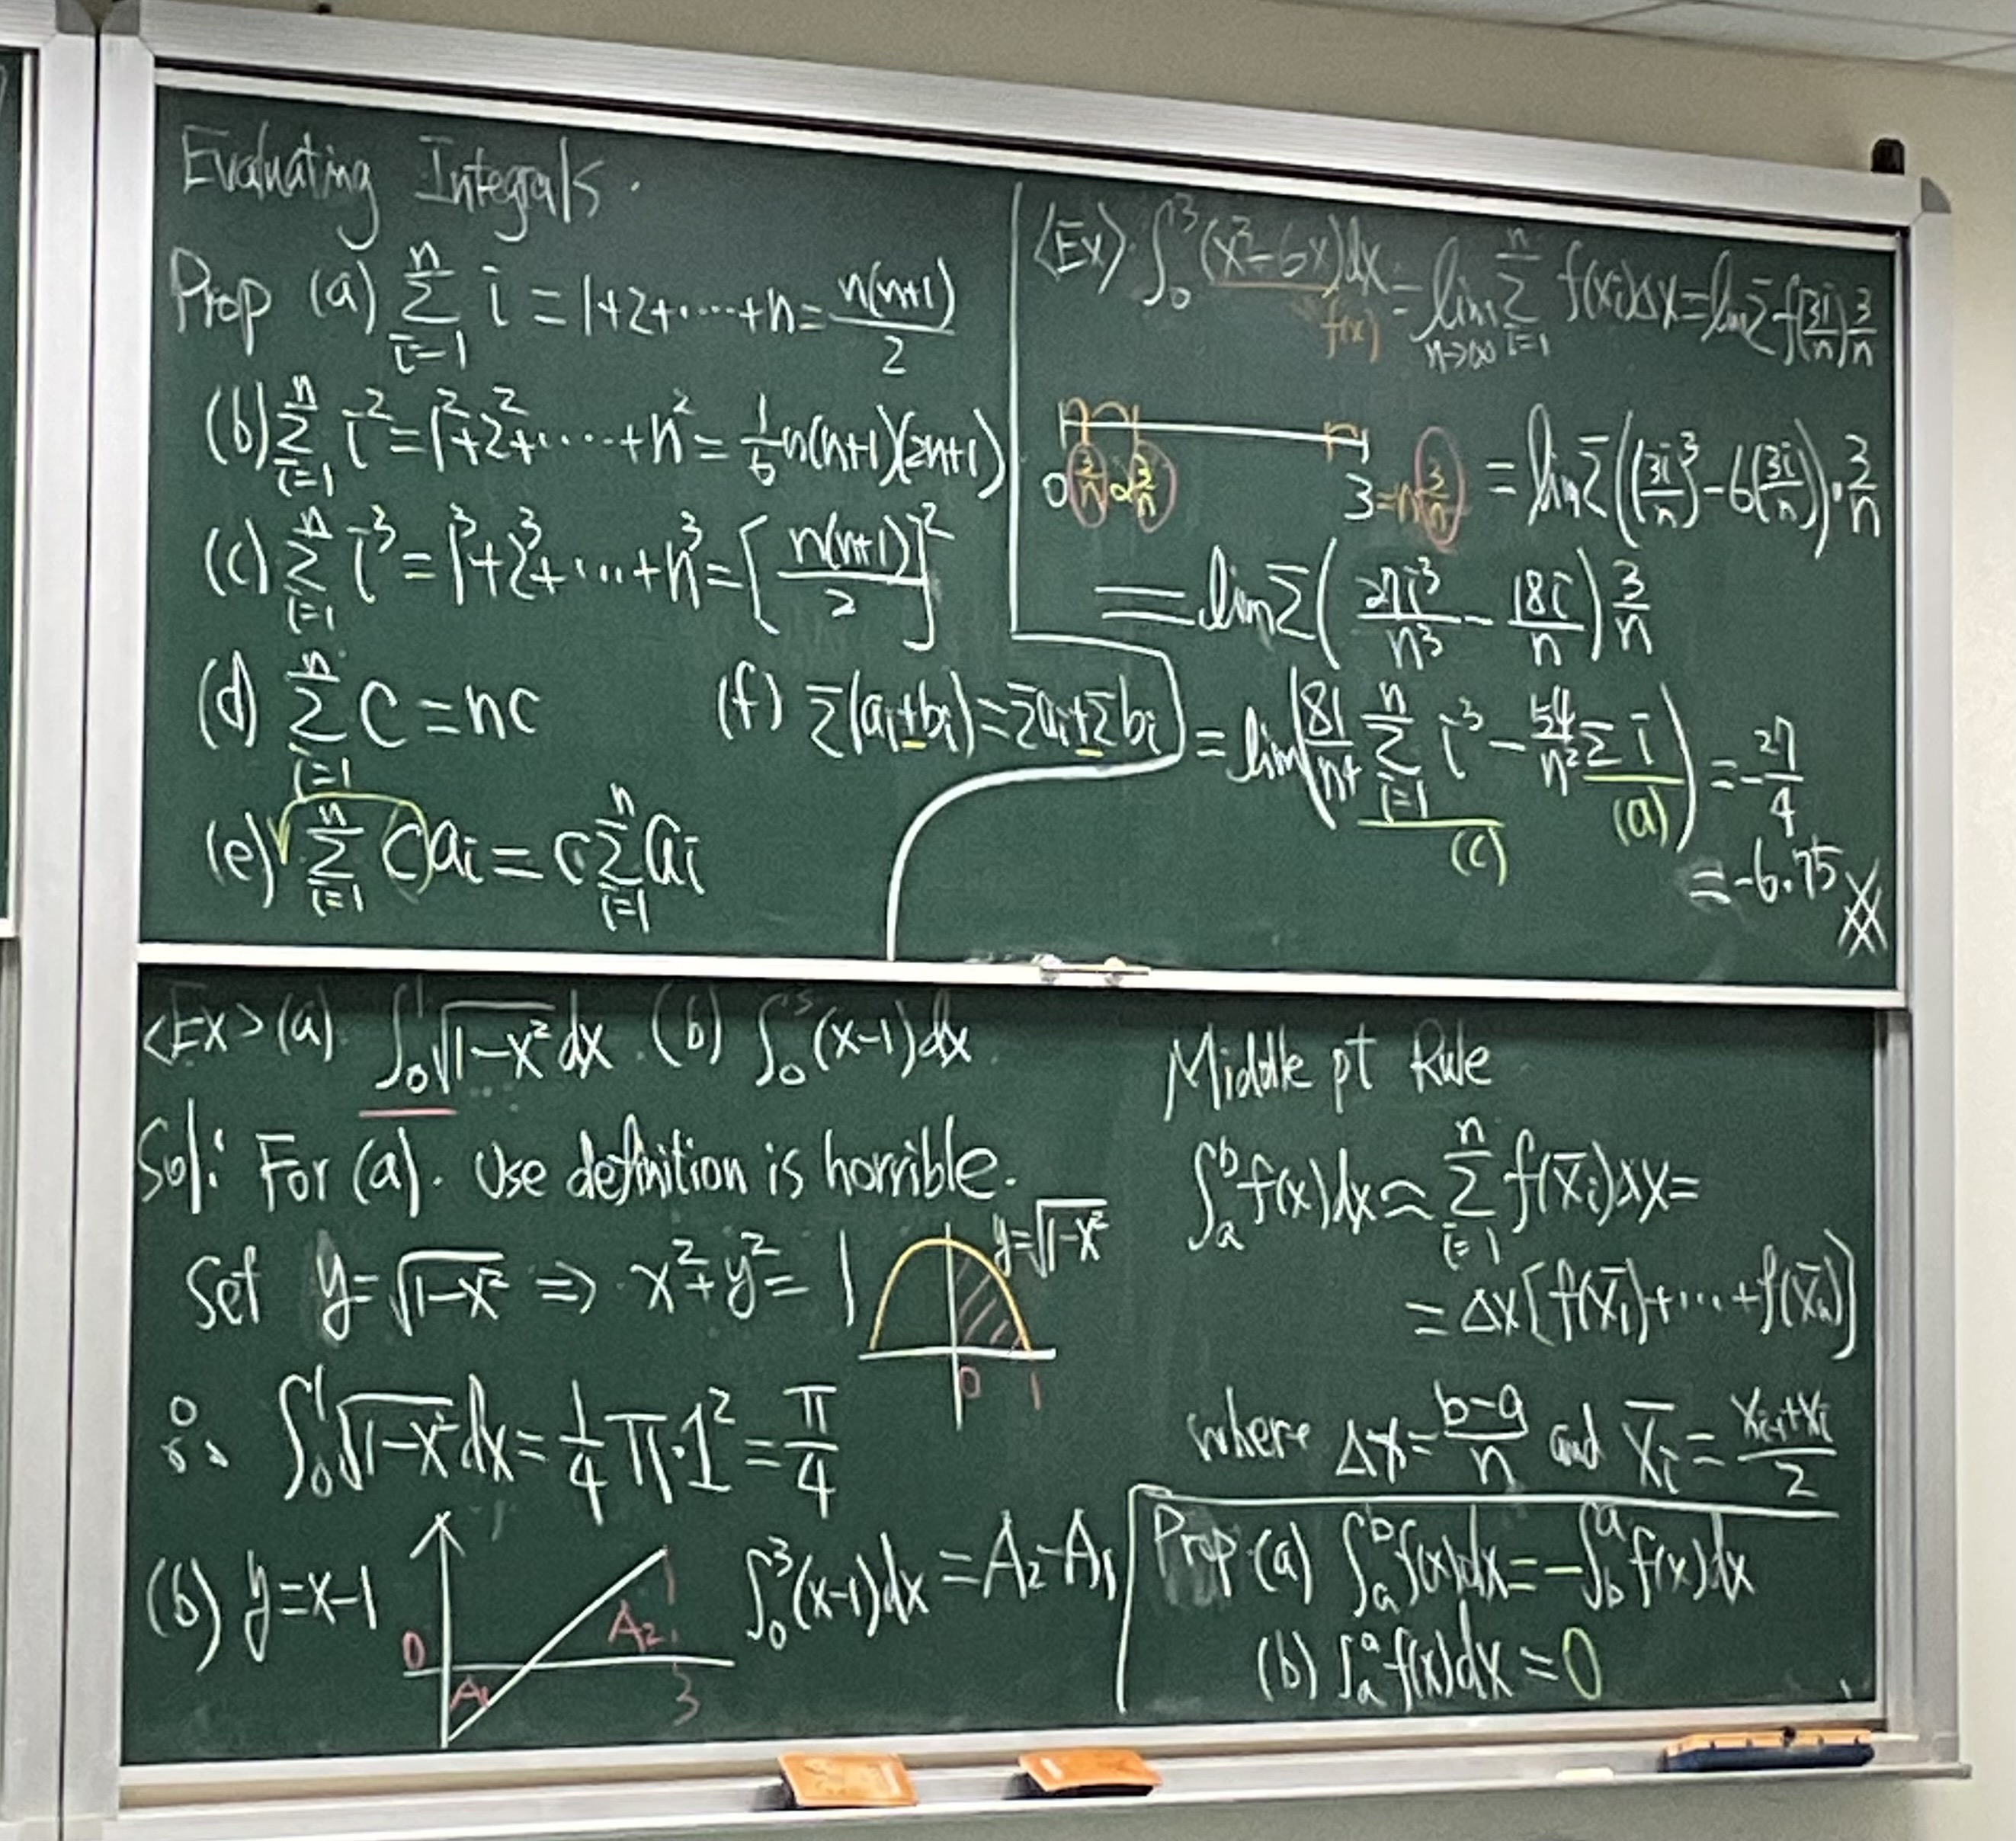 Evaluating Integrals.
Prop (a) \sum_{i=1}^{n} i = 1+2+⋯+n = \frac{n(n+1)}{2}
(b) \sum_{i=1}^{n} i^2 = 1^2+2^2+⋯+n^2 = \frac{1}{6}n(n+1)(2n+1)
(c) \sum_{i=1}^{n} i^3 = 1^3+2^3+⋯+n^3 = [\frac{n(n+1)}{2}]^2
(d) \sum_{i=1}^{n} c = nc
(f) \sum(a_i+b_i) = \sum a_i + \sum b_i
(e) \sum_{i=1}^{n} c a_i = c \sum_{i=1}^{n} a_i
<Ex>. \int_0^3 (x^3-6x)dx = \lim_{n→∞} \sum_{i=1}^{n} f(x_i)Δx = \lim \sum f(\frac{3i}{n})\frac{3}{n}
f(x)
0 \frac{3}{n} 2\frac{3}{n} 3=n\frac{3}{n}
= \lim \sum((\frac{3i}{n})^3 - 6(\frac{3i}{n}))·\frac{3}{n}
= \lim \sum(\frac{27i^3}{n^3} - \frac{18i}{n})\frac{3}{n}
= \lim(\frac{81}{n^4} \sum_{i=1}^{n} i^3 - \frac{54}{n^2} \sum i) = -\frac{27}{4}
(c) (a)
= -6.75
<Ex> (a). \int_0^1 \sqrt{1-x^2} dx. (b) \int_0^3 (x-1)dx
Sol: For (a). Use definition is horrible.
Set y=\sqrt{1-x^2} ⇒ x^2+y^2=1
y=\sqrt{1-x^2}
0 1
∴ \int_0^1 \sqrt{1-x^2} dx = \frac{1}{4}π·1^2 = \frac{π}{4}
(b) y=x-1
0 A_1 A_2 3
\int_0^3 (x-1)dx = A_2-A_1
Middle pt Rule
\int_a^b f(x)dx ≈ \sum_{i=1}^{n} f(\bar{x}_i)Δx =
= Δx[f(\bar{x}_1)+⋯+f(\bar{x}_n)]
where Δx = \frac{b-a}{n} and \bar{x}_i = \frac{x_{i-1}+x_i}{2}
Prop. (a) \int_a^b f(x)dx = -\int_b^a f(x)dx
(b) \int_a^a f(x)dx = 0